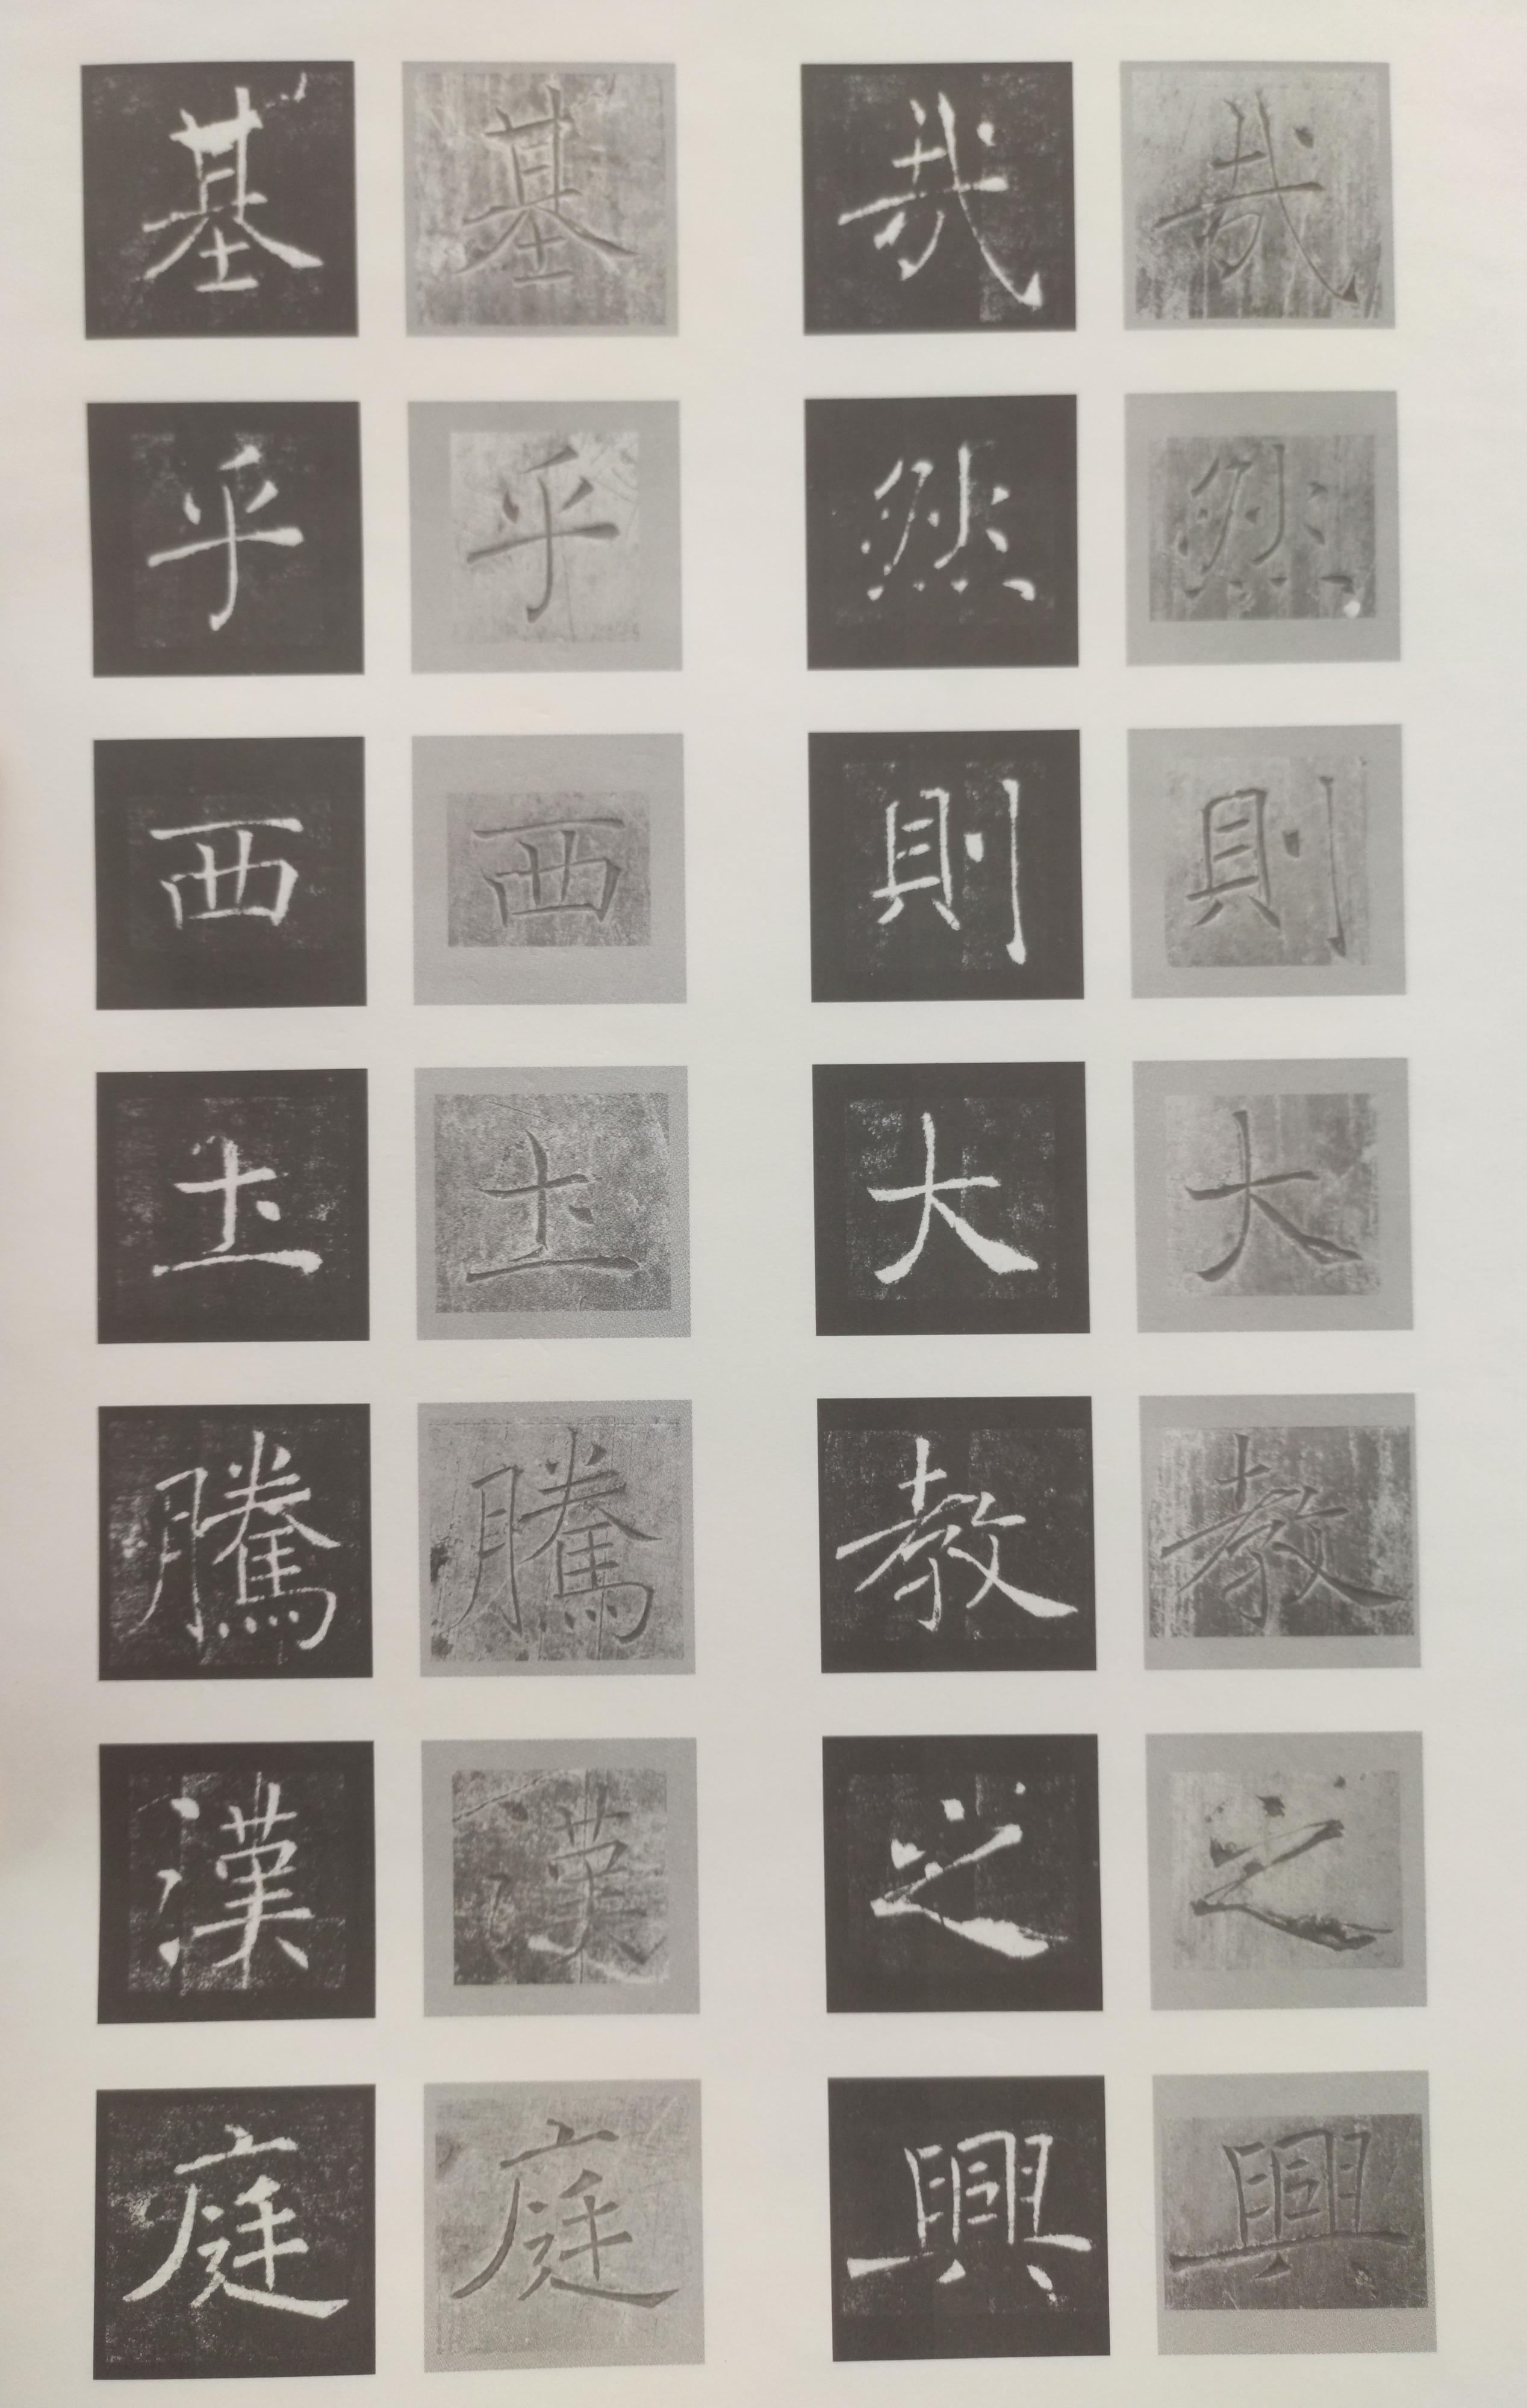 哉然則大教之興
哉然則大教之興
基乎西圡騰漢庭
基乎西圡騰漢庭